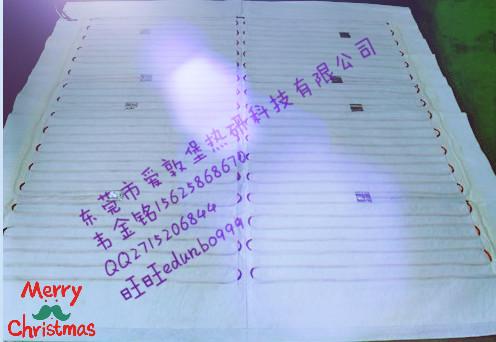 东莞市爱敦堡热研科技有限公司
韦金铭15625868670
QQ2715206844
旺旺edunbo999
Merry
Christmas